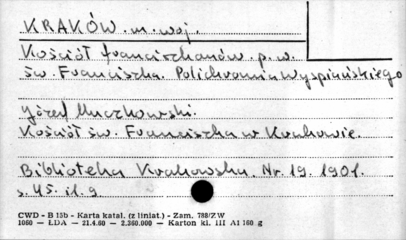 KRAKÓW. m. woj.
Kościół franciszkanów. p.w.
św. Franciszka. Polichromia Wyspiańskiego
Józef Muczkowski.
Kościół św. Franciszka w Krakowie.
Biblioteka Krakowska. Nr. 19. 1901.
s. 45. il. 9.
CWD - B 15b - Karta katal. (z liniat.) - Zam. 788/ZW
1060 - ŁDA - 21.4.60 - 2.360.000 - Karton kl. III A1 160 g